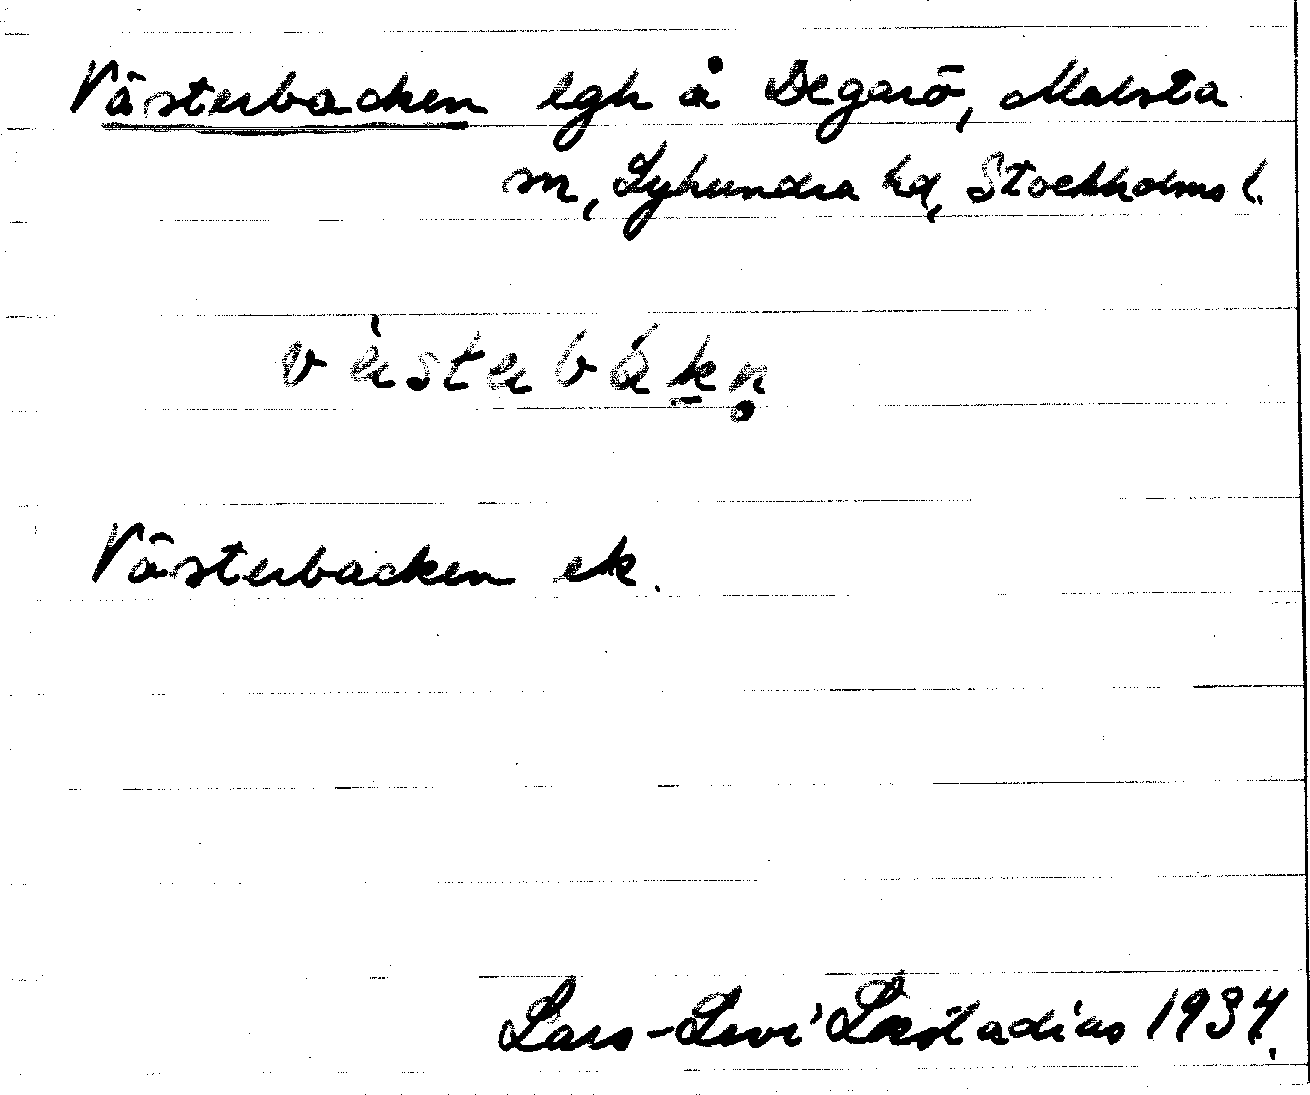 Västerbacken lgh å Degarö, Malsta
sn, Lyhundra hd, Stockholms l.
vὰstαbákn̥
Västerbacken ek.
Lars-Levi Læstadius 1934.